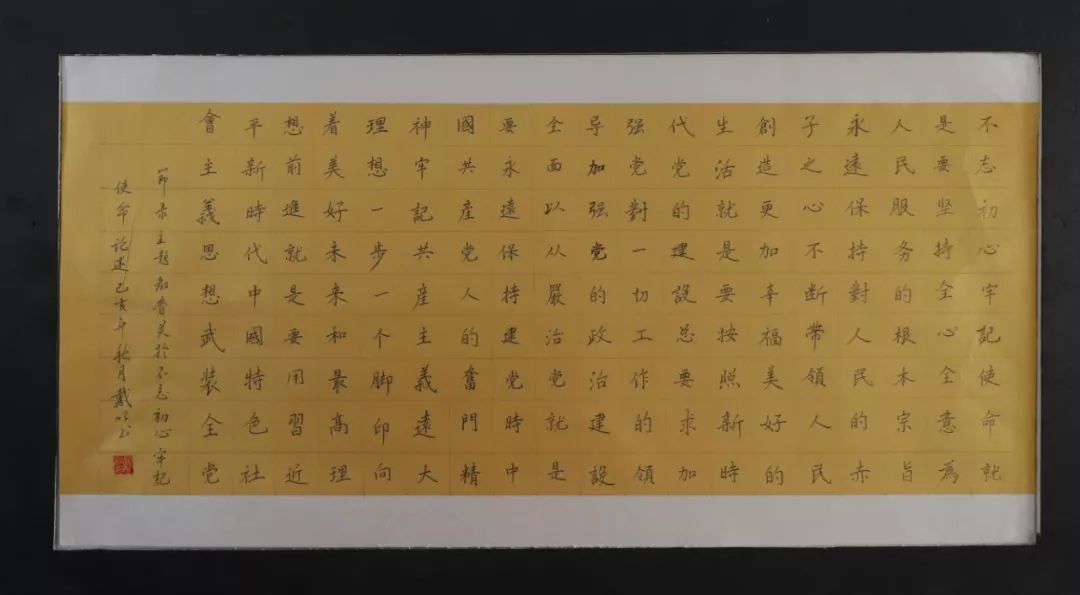 不忘初心牢記使命就
是要坚持全心全意為
人民服务的根本宗旨
永遠保持對人民的赤
子之心不断带領人民
創造更加幸福美好的
生活就是要按照新時
代党的建設总要求加
强党對一切工作的領
导加强党的政治建設
全面以从嚴治党就是
要永遠保持建党時中
國共産党人的奮門精
神牢記共産主義遠大
理想一步一个脚印向
着美好未来和最高理
想前進就是要用習近
平新時代中國特色社
會主義思想武裝全党
節录主題教育关於不忘初心牢記
使命论述己亥年秋月戴书